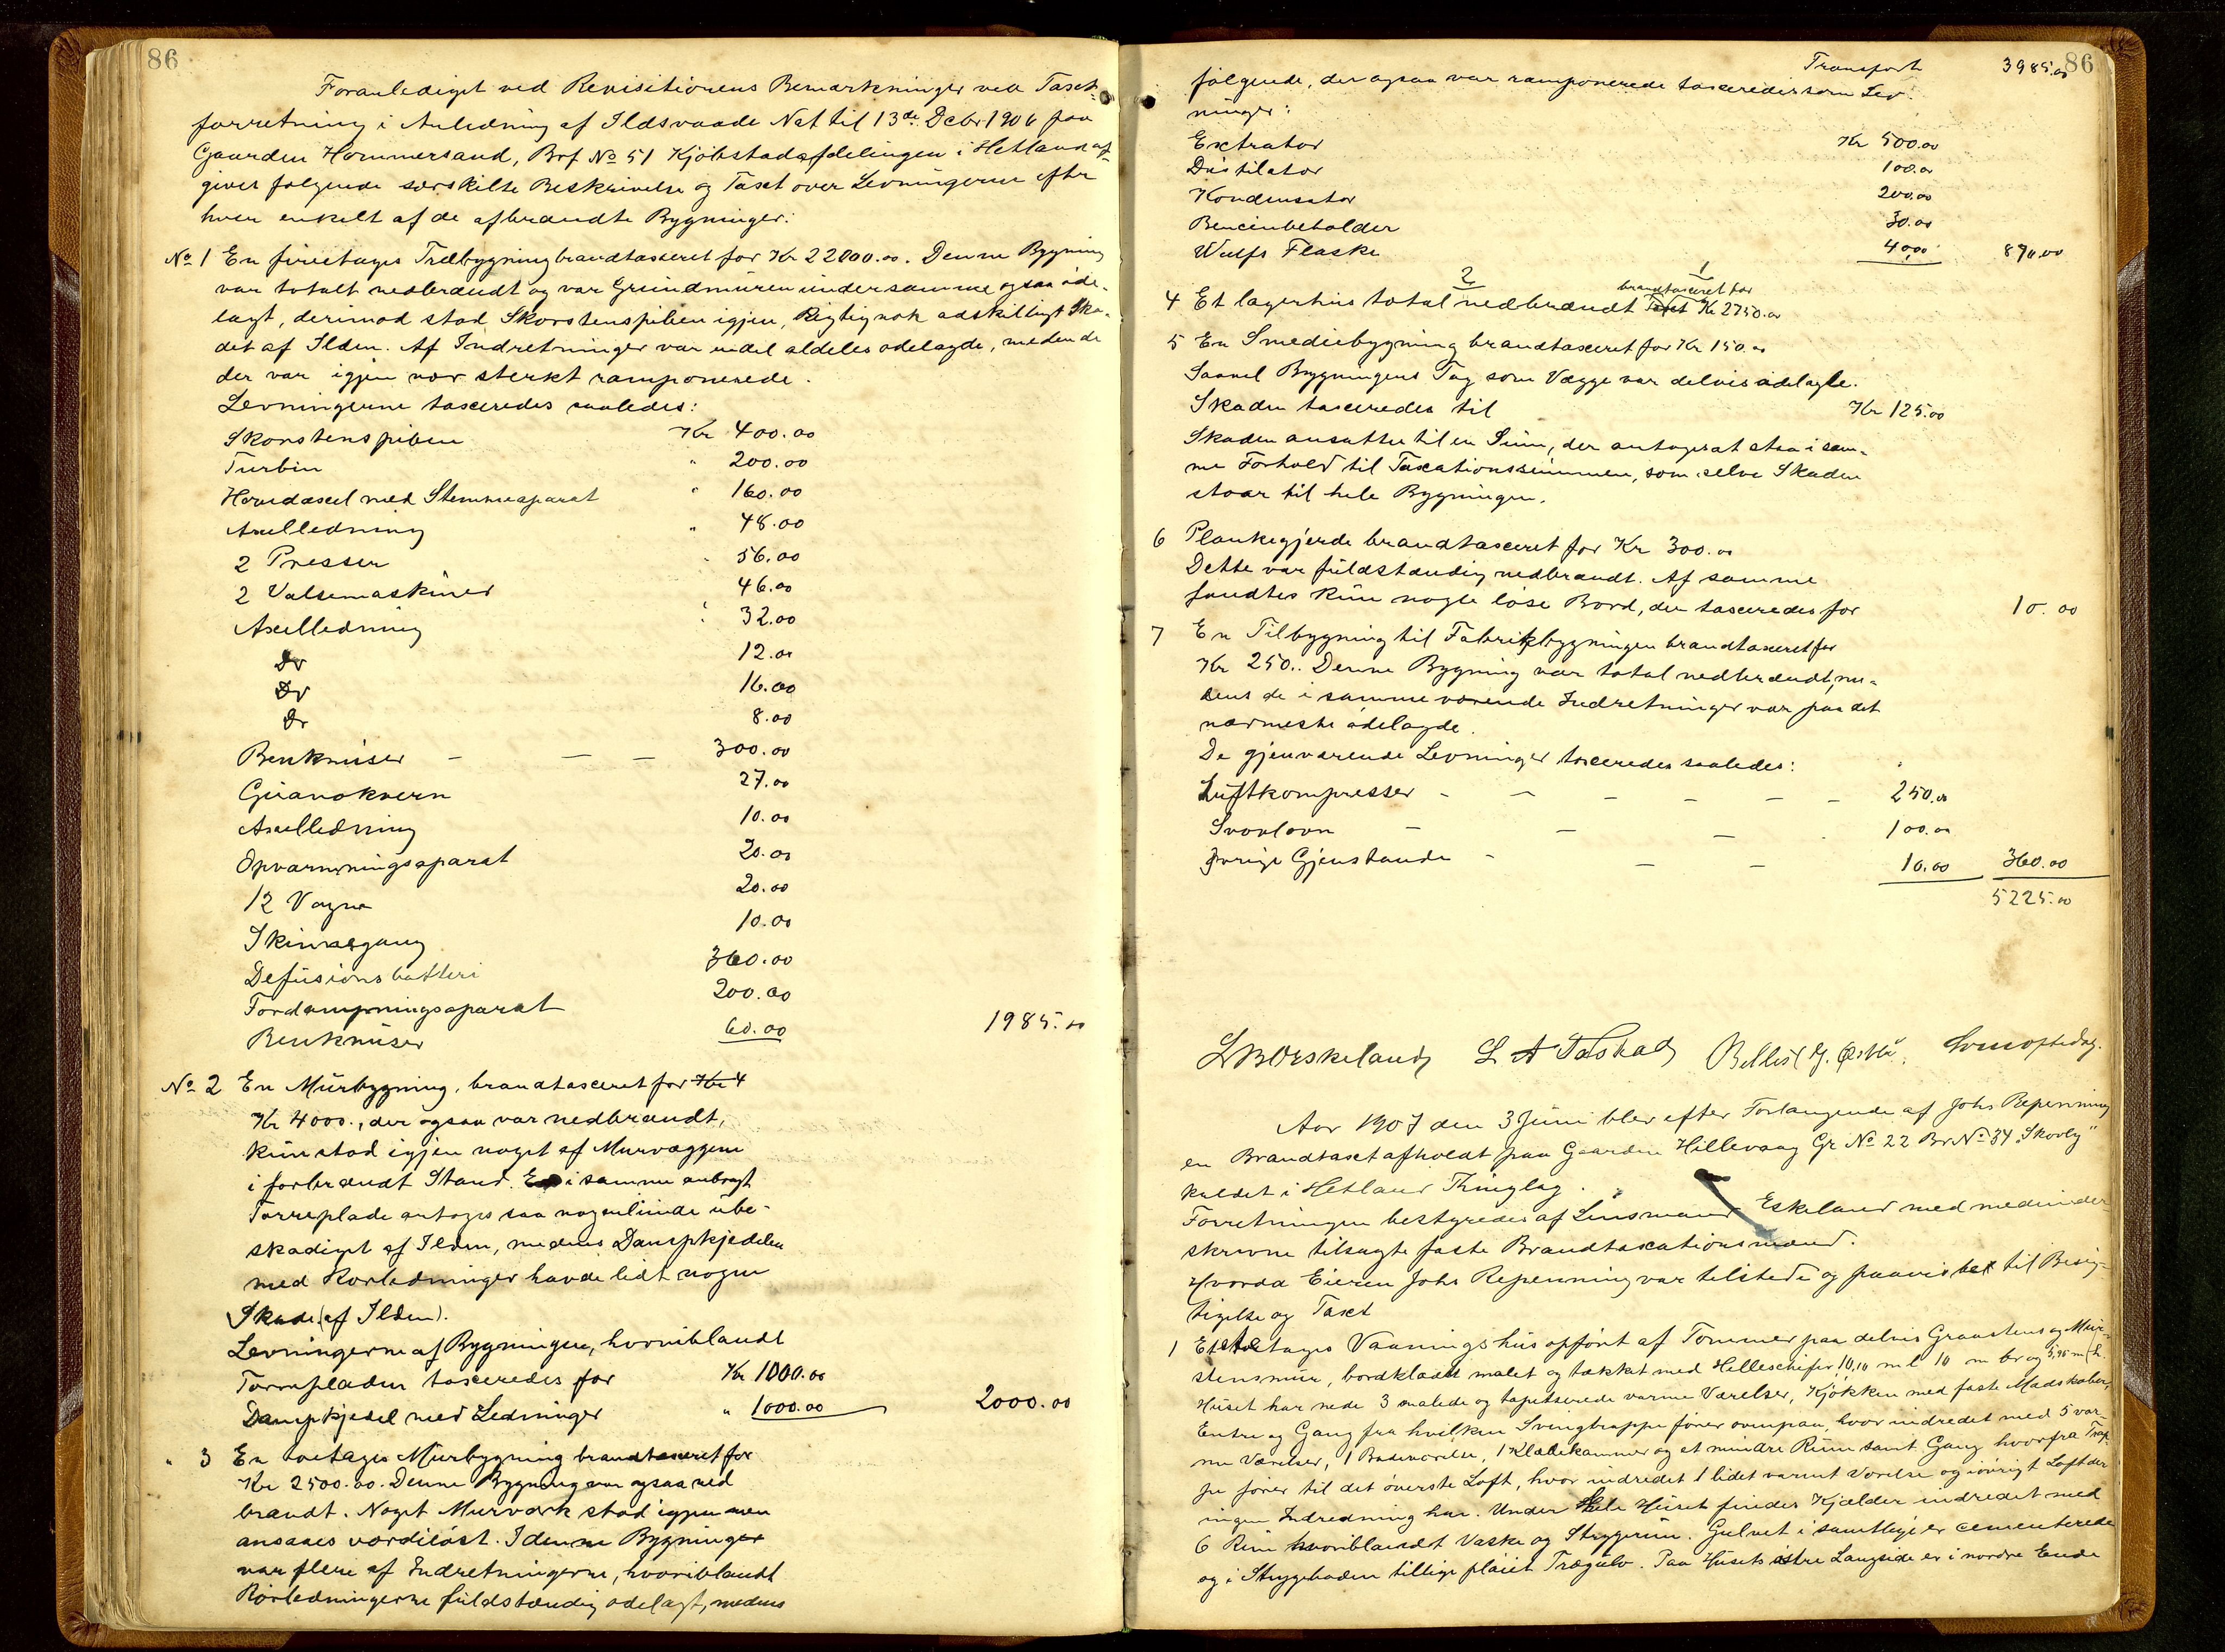 86
Foranlediget ved Revisitionens Bemærkninger ved Taxt-
forretning i Anledning af Ildsvaade Nat til 13de Debr 1906 paa
Gaarden Hammersand, Brf No 51 Kjöbstadafdelingen i Hetland af-
gives følgende særskilte Beskrivelse og Taxt over Levningerne efter
hver enkelt af de afbrændte Bygninger:
No 1 En fireetages Træbygning brandtaxeret for Kr 22000.00. Denne Bygning
var totalt nedbrændt og var Grundmuren under samme ogsaa öde-
lagt, derimod stod Skorstenspiben igjen, Rigtignok adskilligt ska-
det af Ilden. Af Indretninger var endel aldeles ödelagde, medens de
der var igjen var sterkt ramponerede.
Levningerne taxeredes saaledes:
Skorstenspiben Kr 400.00
Turbin " 200.00
Hovedaxel med Stemmeaparat " 160.00
Axelledning " 48.00
2 Presser " 56.00
2 Valsemaskiner 46.00
Axelledning " 32.00
Do 12.00
Do 16.00
Do 8.00
Benknuser — — — 300.00
Guanokvern 27.00
Axelledning 10.00
Opvarmningsaparat 20.00
12 Vogne 20.00
Skinnegang 10.00
Defusionsbatteri 360.00
Fordampningsaparat 200.00
Benknuser 60.00 1985.00
No 2 En Murbygning, brandtaxeret for Kr 4
Kr 4000., der ogsaa var nedbrændt,
kun stod igjen noget af Murvæggene
i forbrændt Stand. En i samme anbragt
Tørreplade antoges saa nogenlunde ube-
skadiget af Ilden, medens Dampkjedelen
med Rørledninger havde lidt nogen
Skade (af Ilden).
Levningerne af Bygningen, hvoriblandt
Tørrepladen taxeredes for Kr 1000.00
Dampkjedel med Ledninger " 1000.00 2000.00
" 3 En toetages Murbygning brandtaxeret for
Kr 2500.00. Denne Bygning var ogsaa ned
brændt. Noget Murværk stod igjen men
ansaaes værdilöst. I denne Bygninger
var flere af Indretningerne, hvoriblandt
Rörledningerne fuldstændig ödelagt, medens
86
Transport 3985.00
følgende, der ogsaa var ramponerede taxeredes som Lev-
ninger:
Extrator Kr 500.00
Distilator 100.00
Kondensator 200.00
Bencinbeholder 30.00
Wulfs Flaske 40.00 870.00
2 1 brandtaxeret for
4 Et lagerhus total nedbrændt Taxt Kr 2750.00
5 En Smediebygning brandtaxeret for Kr 150.00
Saavel Bygningens Tag som Vægge var delvis ödelagte.
Skaden taxeredes til Kr 125.00
Skaden ansattes til en Sum, der antoges at staa i sam-
me Forhold til Taxationssummen, som selve Skaden
staar til hele Bygningen.
6 Plankegjerde brandtaxeret for Kr 300.00
Dette var fuldstændig nedbrændt. Af samme
fandtes kun nogle löse Bord, der taxeredes for 10.00
7 En Tilbygning til Fabrikbygningen brandtaxeret for
Kr 250.. Denne Bygning var total nedbrændt, me-
dens de i samme værende Indretninger var paa det
nærmeste ödelagde.
De gjenværende Levninger taxeredes saaledes:
Luftkompresser - - - - - - 250.00
Svovlovn - - - 100.00
Övrige Gjenstande - - - 10.00 360.00
5225.00
Aar 1907 den 3 Juni blev efter Forlangende af Johs Repenning
en Brandtaxt afholdt paa Gaarden Hillevaag Gr No 22 Br No 34 "Skovly"
kaldet i Hetland Thinglag.
Forretningen bestyredes af Lensmand Eskeland med medunder
skrevne tilsagte faste Brandtaxationsmænd.
Hvorda Eieren Johs Repenning var tilstede og paaviste til Besig-
tigelse og Taxt
1 Et etages Vaaningshus opfört af Tömmer paa delvis Graastens og Mur-
stensmur, bordklædt malet og tækket med Helleschifer 10,10 m l 10 m br og 5,95 m h.
Huset har nede 3 malede og tapetserede varme Værelser, Kjökken med faste Madskaber,
Entre og Gang fra hvilken Svingtrappe förer ovenpaa, hvor indredet med 5 var-
me Værelser, 1 Badeværelse, 1 Klædekammer og et mindre Rum samt Gang hvorfra Trap-
pe förer til det överste Loft, hvor indredet 1 lidet varmt Værelse og iövrigt Loft der
ingen Indredning har. Under Hele Huset findes Kjælder indredet med
6 Rum hvoriblandt Vaske og Strygerum. Gulvet i samtlige er cementerede
og i Strygeboden tillige plöiet Trægulv. Paa Husets östre Langside er i nordre Ende